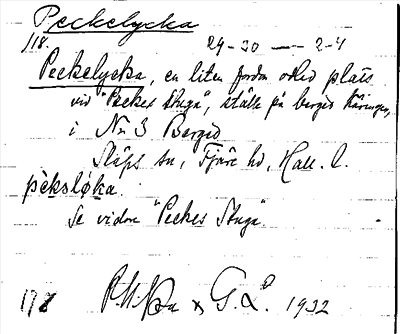 Peckelycka
118. 29-30 — 2-4
Peckelycka, en liten fordom odlad plats
vid "Peckes stuga", ställe på berget Käringen,
i No 3 Berged
Släps sn, Fjäre hd, Hall. l.
pèksløka.
Se vidare "Peckes Stuga".
G. L. 1932